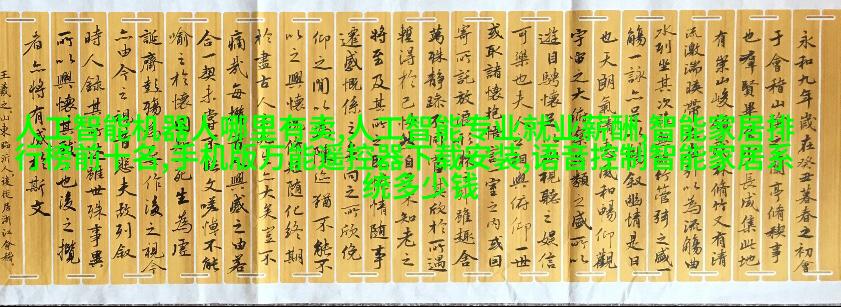 人工智能机器人哪里有卖,人工智能专业就业薪酬,智能家居排
行榜前十名,手机版万能遥控器下载安装,语音控制智能家居系
统多少钱
永和九年歲在癸丑暮春之初會
于會稽山亭脩稧事
也群賢畢長咸集此地
有崇山峻脩竹又有清
流激湍暎帶引以為流觴曲
水列坐其次竹管弦之盛一
觴一詠亦足叙幽情是日
也天朗氣清風和暢仰觀
宇宙之大俯察類之盛所以
遊目騁懷視聽之娛信
可樂也夫相與俯仰一世
或取諸懷抱悟室之內或因
寄所託放浪雖趣舍
萬殊靜躁欣於所遇
暫得於己不知老之
將至及其所情隨事
遷感慨係之所欣俛
仰之間以迹猶不能不
以之興懷隨化終期
於盡古人大矣豈不
痛哉每攬興感之由若
合一契未嘗文嗟悼不能
喻之於懷死生為虛
誕齊彭殤作後之視今
亦由今之視悲夫故列叙
時人錄其雖世殊事異
所以興懷其致也後之攬
者亦將有感斯文
王羲之山東臨沂人後徙居浙江會稽